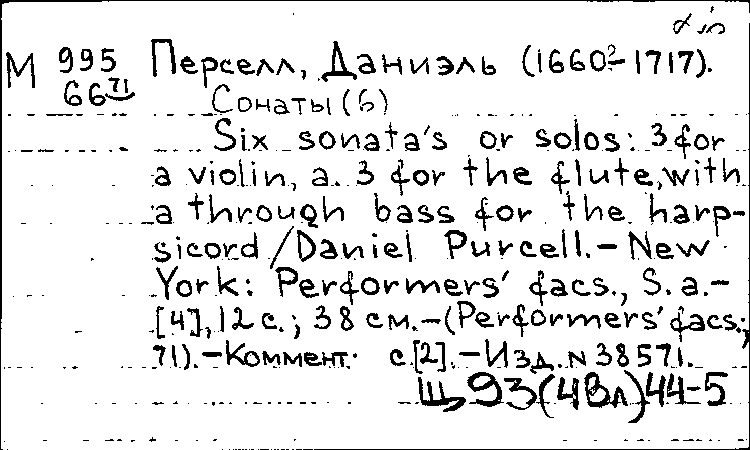 М 995 Перселл, Даниэль (1660?-1717).
66 71 Сонаты (6)
Six sonata's or solos: 3 for
a violin, a. 3 for the flute, with
a through bass for the harp-
sicord / Daniel Purcell. - New
York: Performers' facs., S. a. -
[4], 12 с.; 38 см. - (Performers' facs.;
71). - Коммент. с. [2]. - Изд. N 38571.
Щ 93(4Вл)44-5